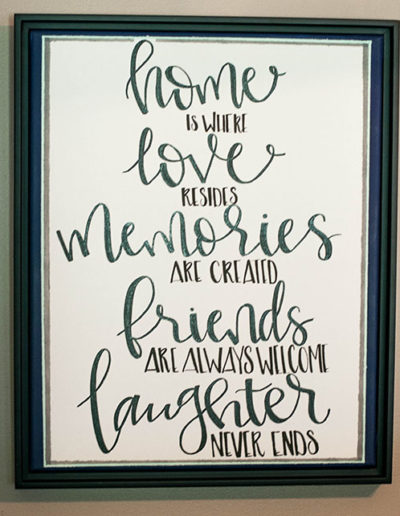 home
IS WHERE
love
RESIDES
memories
ARE CREATED
friends
ARE ALWAYS WELCOME
laughter
NEVER ENDS